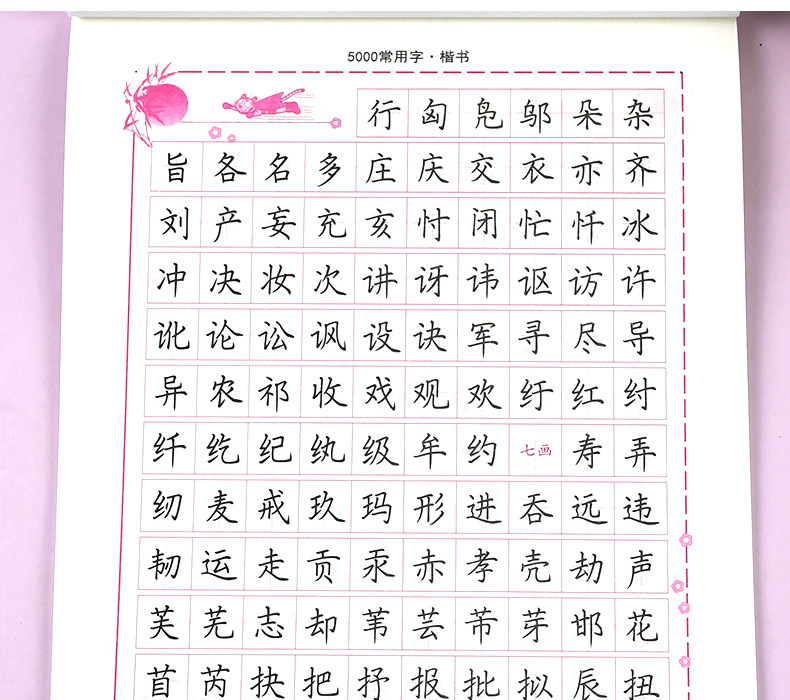 5000常用字·楷书
行匈凫邬朵杂
旨各名多庄庆交衣亦齐
刘产妄充亥忖闭忙忏冰
冲决妆次讲讶讳讴访许
讹论讼讽设诀军寻尽导
异农祁收戏观欢纡红纣
纤纥纪纨级牟约七画寿弄
纫麦戒玖玛形进吞远违
韧运走贡汞赤孝壳劫声
芙芜志却苇芸芾芽邯花
苜芮抉把抒报批拟辰扭